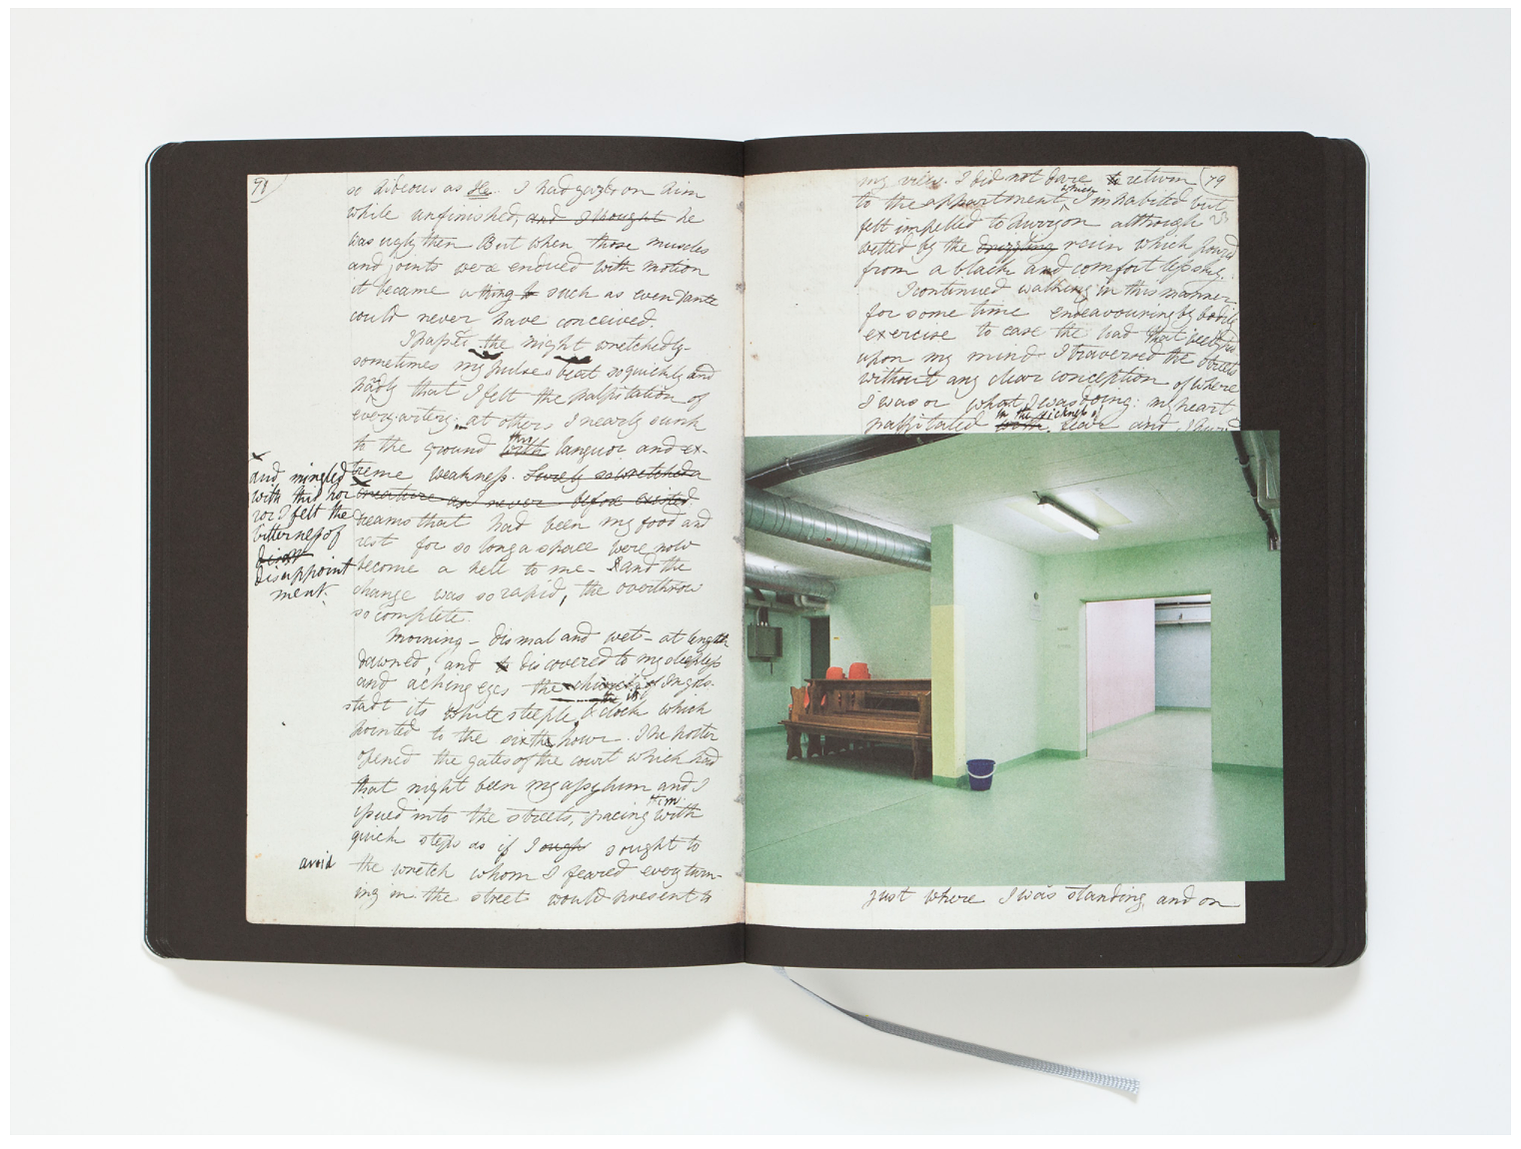 98
so hideous as He. I had gazed on him
while unfinished, and I thought he
was ugly then But when those muscles
and joints were endued with motion
it became a thing such as even Dante
could never have conceived.
I passed the night wretchedly-
sometimes my pulse beat so quickly and
hardly that I felt the palpitation of
every artery; at others I nearly sunk
to the ground with thro languor and ex-
treme weakness. Surely so wretched a
creature as never before existed
dreams that had been my food and
rest for so long a space were now
become a hell to me- and the
change was so rapid, the overthrow
so complete.
Morning - dismal and wet - at length
dawned, and discovered to my sleepless
and aching eyes the church of Ingols-
stadt its white steeple & clock which
pointed to the sixth hour. The porter
opened the gates of the court which had
that night been my assylum and I
issued into the streets, pacing them with
quick steps as if I sought to
the wretch whom I feared every turn-
ing in the street would present to
x and mingled
with this hor
ror I felt the
bitterness of
disappoint
ment.
avoid
79
my view. I did not dare to return
to the appartment which I inhabited but
felt impelled to hurry on although
wetted by the drizzling rain which poured
from a black and comfortless sky.
I continued walking in this manner
for some time endeavouring by bodily
exercise to ease the load that weighed
upon my mind. I traversed the streets
without any clear conception of where
I was or what I was doing: my heart
palpitated in the sickness of fear and I
just where I was standing and on